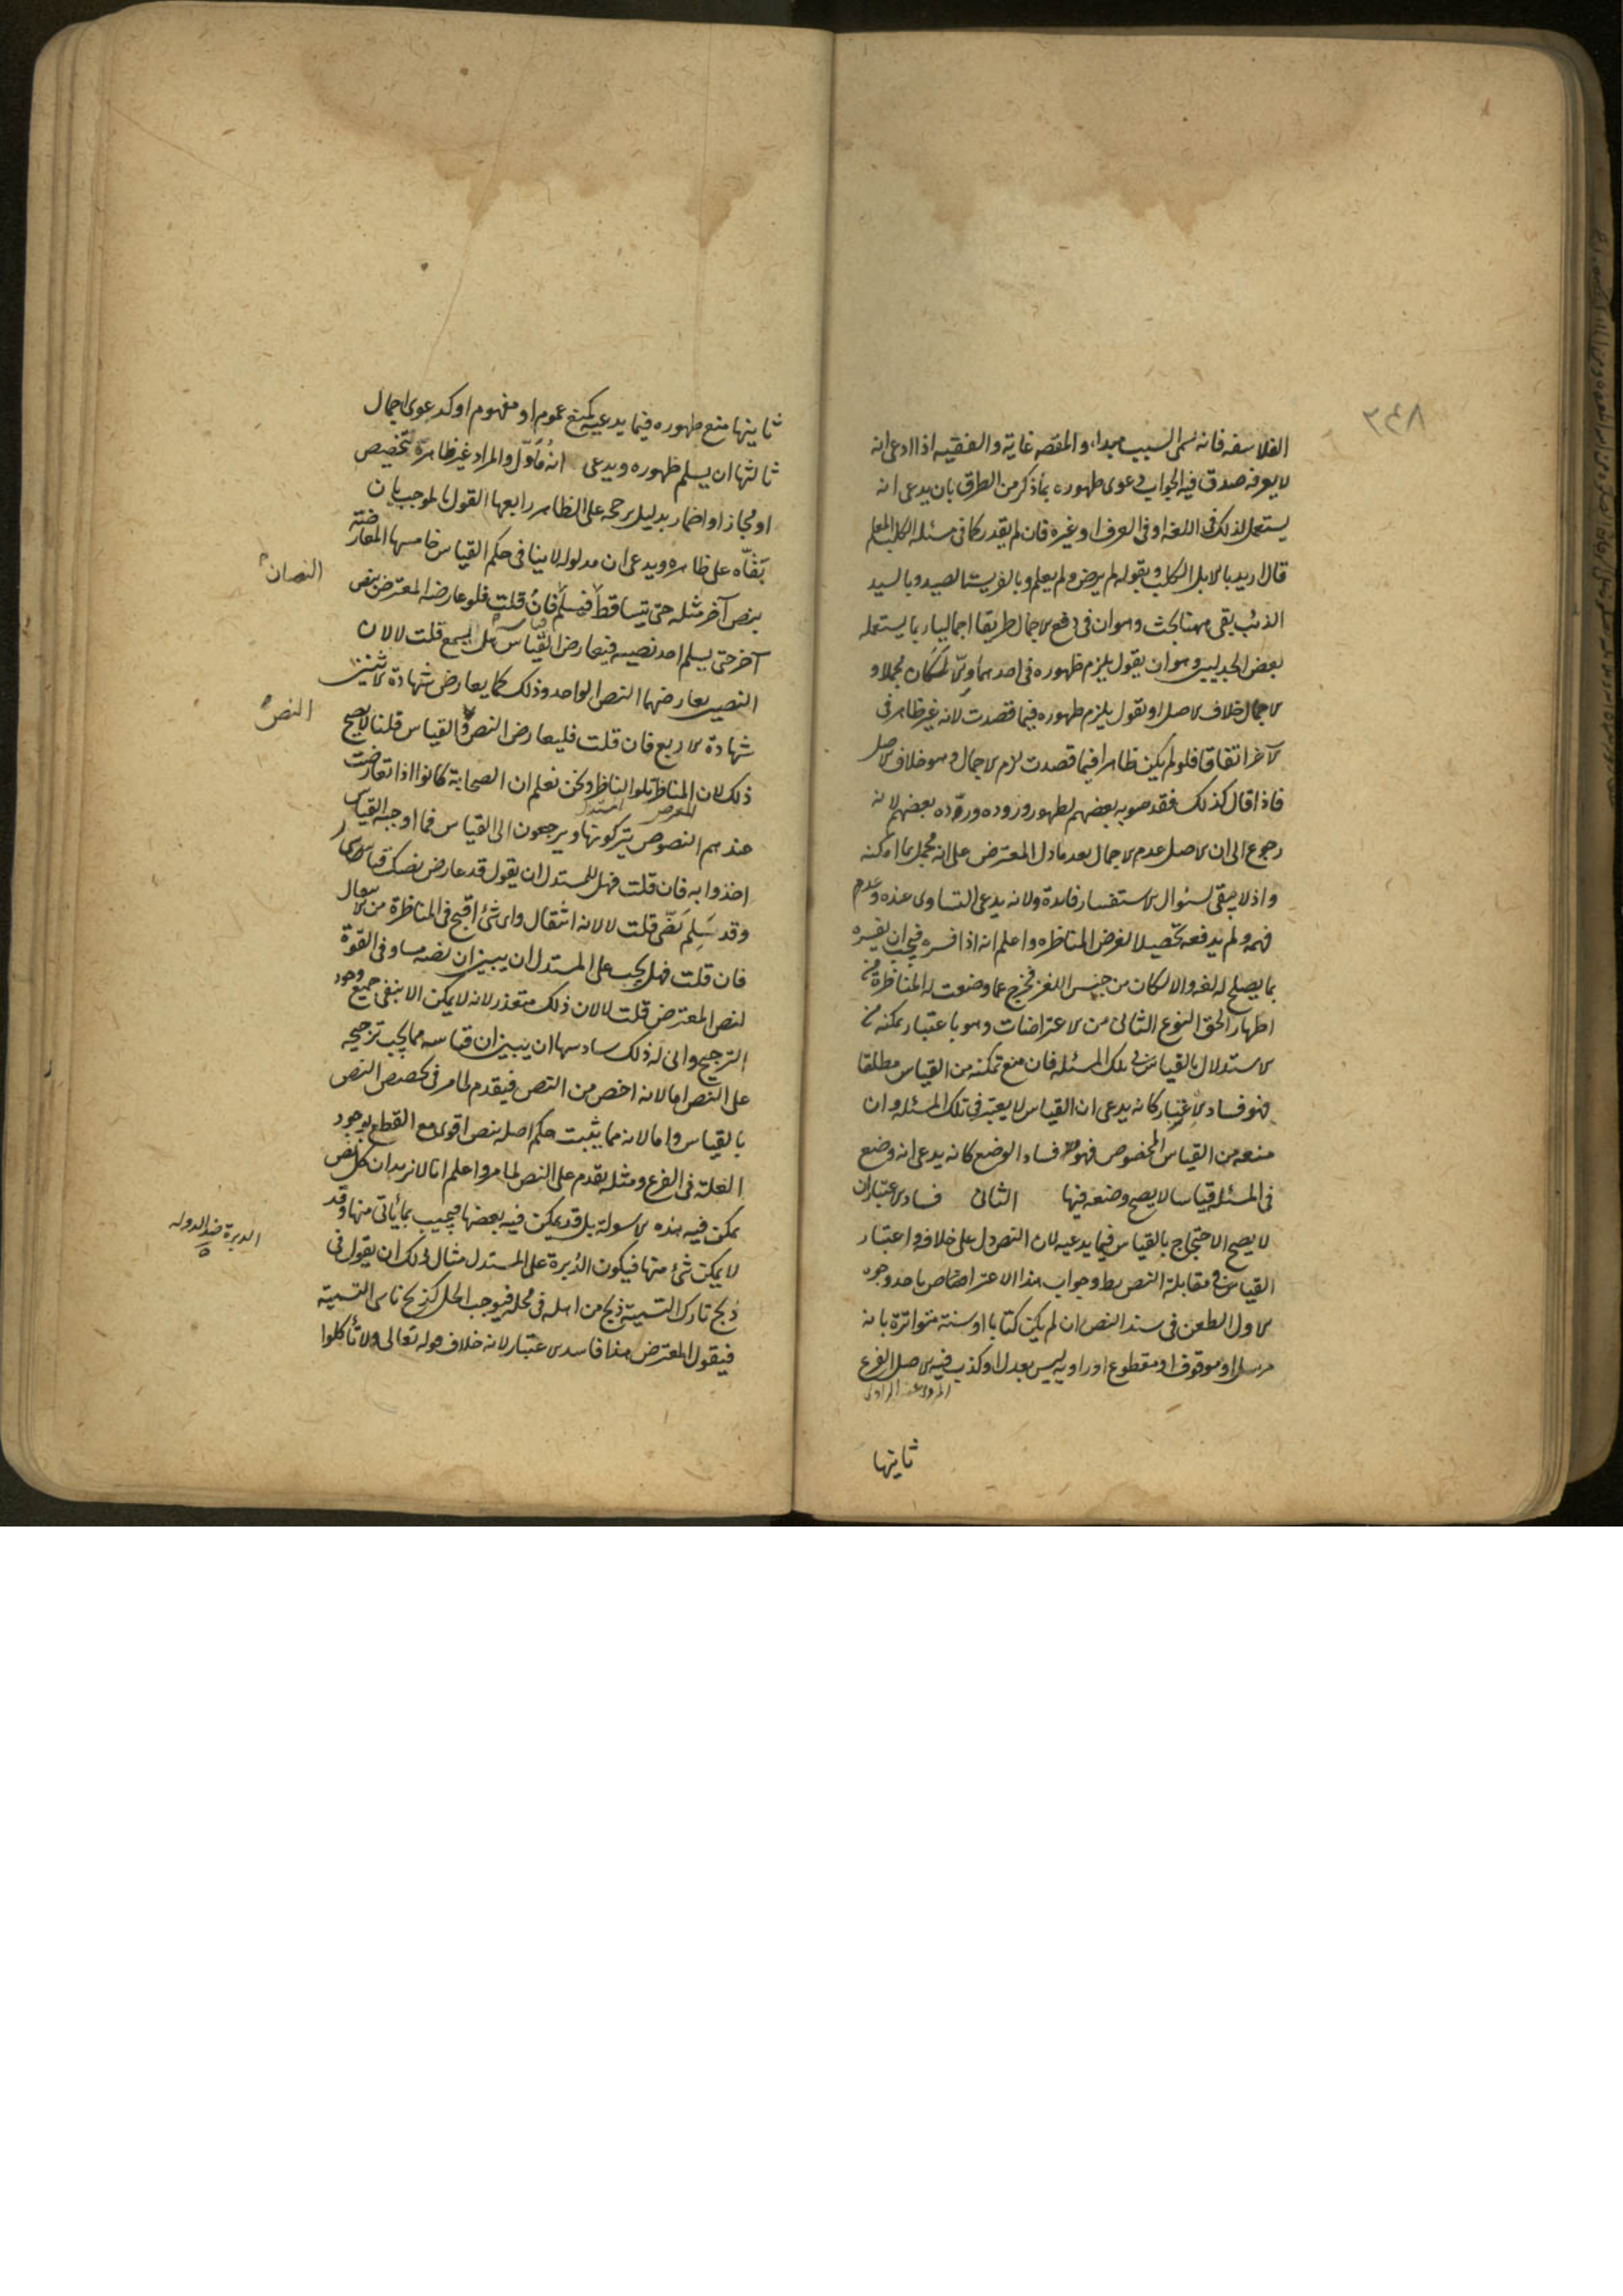 ٣٤٨
الفلاسفه فانه تسمى السبب مبدا، والمقصد غاية والفقيه اذا ادعى انه
لا يعرفه صدق فيه الجواب دعوى ظهوره بما ذكر من الطرق بان يدعى انه
يستعمل لذلك فى اللغه او فى العرف او غيره فان لم يقدر كما فى مسئله الكلب المعلم
قال اريد بالابل الكلب وبقوله لم يرض ولم يعلم وبالفريسة الصيد وبالسيد
الذئب بقى ههنا بحث وهو ان فى دفع الاجمال طريقا اجماليا ربما يستعمله
بعض الجدليين وهو ان يقول يلزم ظهوره فى احدهما والا لكان مجملا و
الاجمال خلاف الاصل او يقول يلزم ظهوره فيما قصدت لانه غير ظاهر فى
الآخر اتفاقا فلو لم يكن ظاهرا فيما قصدت لزم الاجمال وهو خلاف الاصل
فاذا قال كذلك فقد صوبه بعضهم لظهور وروده وردّه بعضهم لانه
رجوع الى ان الاصل عدم الاجمال بعد ما دل المعترض على انه مجمل بما امكنه
واذ لا يبقى لسؤال الاستفسار فايدة ولانه يدعى التساوى عنده وعدم
فهمه ولم يدفعه تحصيلا لغرض المناظره واعلم انه اذا فسره فيجب ان يفسره
بما يصلح له لغه والا لكان من جنس اللغز فخرج عما وضعت له المناظرة من
اظهار الحق النوع الثانى من الاعتراضات وهو باعتبار تمكنه من
الاستدلال بالقياس فى تلك المسئله فان منع تمكنه من القياس مطلقا
فهو فساد الاعتبار كانه يدعى ان القياس لا يعتبر فى تلك المسئله وان
منعه من القياس المخصوص فهو فساد الوضع كانه يدعى انه وضع
فى المسئله قياسا لا يصح وضعه فيها الثانى فساد الاعتبار ان
لا يصح الاحتجاج بالقياس فيما يدعيه لان النص دل على خلافه واعتبار
القياس فى مقابلة النص بط وجواب هذا الاعتراض باحد وجوه
الاول الطعن فى سند النص ان لم يكن كتابا او سنة متواترة بانه
مرسل او موقوف او مقطوع او راويه ليس بعدل او كذب فيه الاصل الفرع
المروى عنه الراوى
ثانيها
ثانيها منع ظهوره فيما يدعيه كمنع عموم او مفهوم او كدعوى اجمال
ثالثها ان يسلم ظهوره ويدعى انه مُأوّل والمراد غير ظاهره تخصيص
او مجاز او اضمار بدليل يرجحه على الظاهر رابعها القول بالموجب بان
بقّاه على ظاهره ويدعى ان مدلوله لا ينافى حكم القياس خامسها المعارضة
بنص آخر مثله حتى يتساقط فيسلم فان قلت فلو عارضه المعترض بنص
النصان
آخر حتى يسلم احد نصيه فيعارض القياس هل يسمع قلت لا لان
النصين يعارضهما النص الواحد وذلك كما يعارض شهادة الاثنين
شهادة الاربع فان قلت فليعارض النص والقياس قلنا لا يصح
النص
ذلك لان المناظر تلو الناظر ونحن نعلم ان الصحابة كانوا اذا تعارضت
عندهم النصوص يتركونها ويرجعون الى القياس فما اوجبه القياس
اخذوا به فان قلت فهل للمستدل ان يقول قد عارض نصك قياسى
وقد سَلِمَ نَصّى قلت لا لانه انتقال واى شئ اقبح فى المناظرة من الانتقال
فان قلت فهل يجب على المستدل ان يبين ان نصه مساو فى القوّة
لنص المعترض قلت لا لان ذلك متعذر لانه لا يمكن الا بنفى جميع وجوه
الترجيح وانى له ذلك سادسها ان يبين ان قياسه مما يجب ترجيحه
على النص اما لانه اخص من النص فيقدم لما مر فى تخصيص النص
بالقياس واما لانه مما يثبت حكم اصله بنص اقوى مع القطع بوجود
العلة فى الفرع ومثله يقدم على النص لما مر واعلم انا لا نريد ان كل نص
يمكن فيه هذه الاسولة بل قد يمكن فيه بعضها فيجيب بما يأتى منها وقد
لا يمكن شئ منها فيكون الدُّبرة على المستدل مثال ذلك ان يقول فى
الدبرة ضد الدوله
ذبح تارك التسمية ذبح من اهله فى محله فيوجب الحل كذبح ناسى التسمية
فيقول المعترض هذا فاسد الاعتبار لانه خلاف قوله تعالى ولا تأكلوا